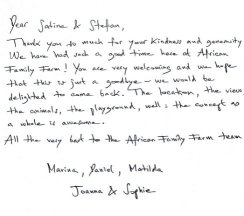 Dear Satina & Stefan,
Thank you to much for your kindness and generosity
We have had such a good time here at African
Family Farm! You are very welcoming and we hope
that this is just a goodbye - we would be
delighted to come back. The location, the view
the animals, the playground, well: the concept as
a whole is awesome.
All the very best to the African Family Farm team
Marina, Daniel, Matilda
Joanna & Sophie